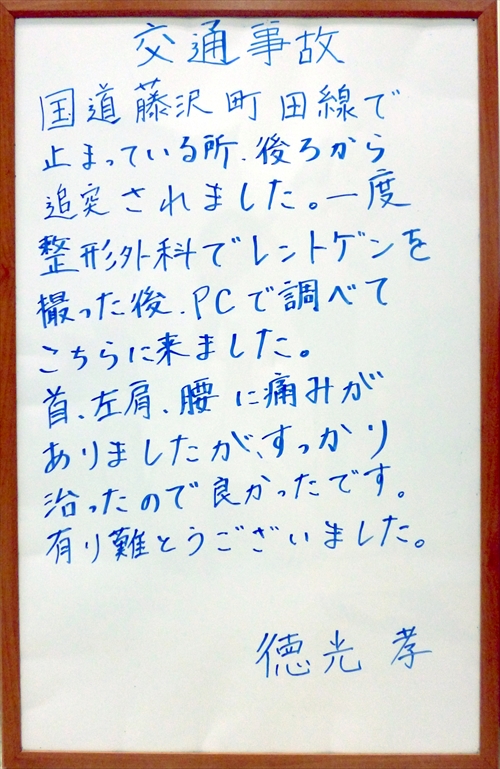 交通事故
国道藤沢町田線で
止まっている所、後ろから
追突されました。一度
整形外科でレントゲンを
撮った後、PCで調べて
こちらに来ました。
首、左肩、腰に痛みが
ありましたが、すっかり
治ったので良かったです。
有り難とうございました。
徳光孝